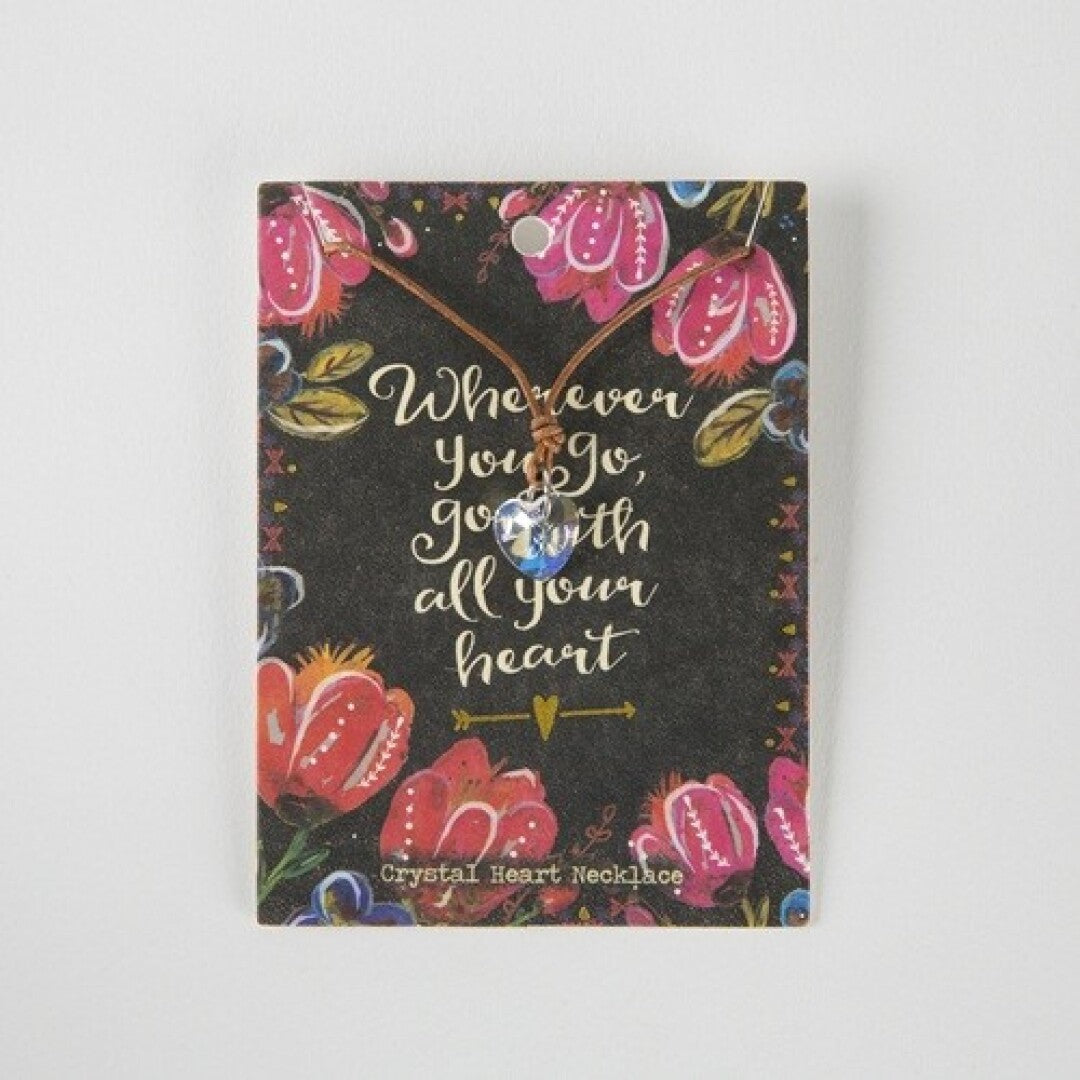 Wherever
you go,
go with
all your
heart
Crystal Heart Necklace